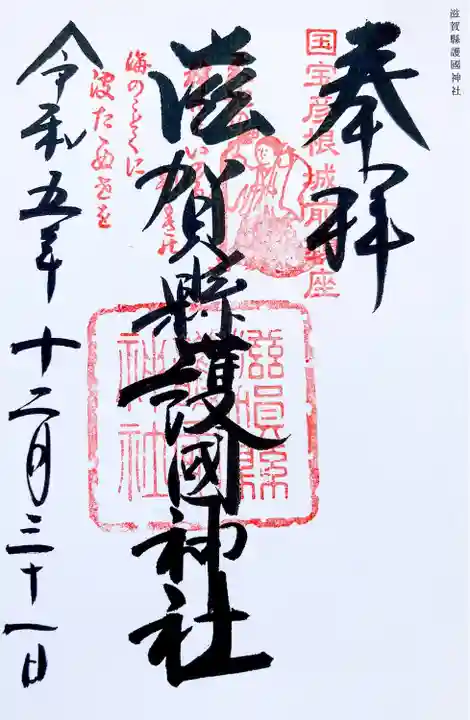 滋賀縣護國神社
奉拝
国宝彦根城前鎮座
滋賀縣護國神社
海の
波た
滋賀縣
神社
令和五年十二月三十一日